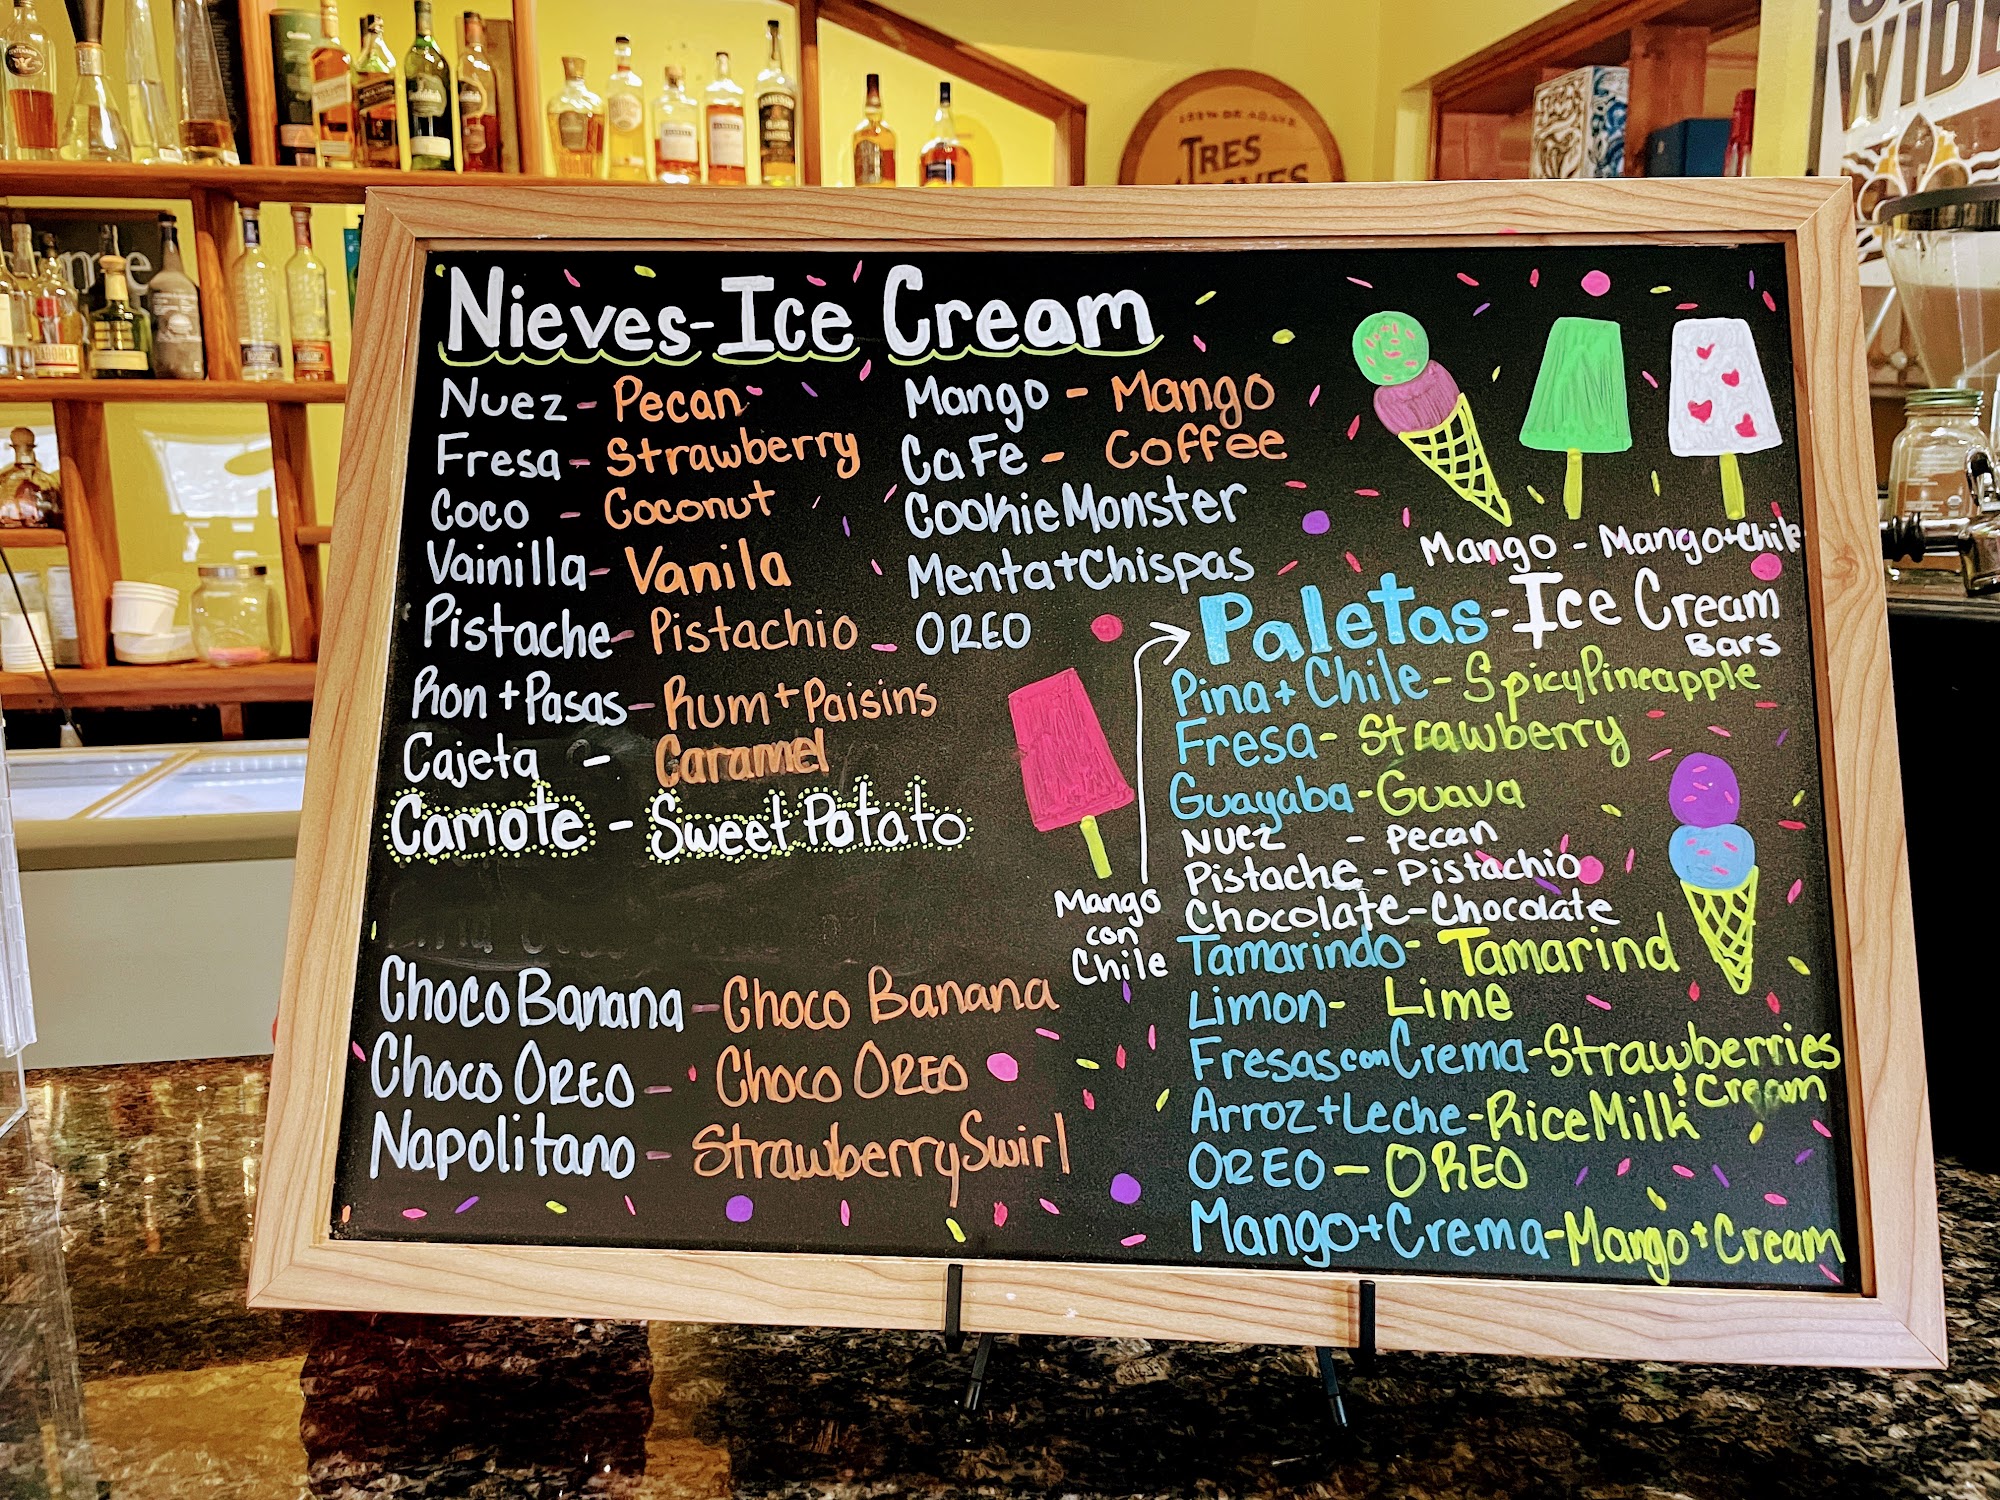 Nieves-Ice Cream
Nuez - Pecan
Fresa - Strawberry
Coco - Coconut
Vainilla - Vanila
Pistache - Pistachio
Ron + Pasas - Rum + Paisins
Cajeta - Caramel
Camote - Sweet Potato
Choco Banana - Choco Banana
Choco OREO - Choco OREO
Napolitano - Strawberry Swirl
Mango - Mango
CaFe - Coffee
Cookie Monster
Menta+Chispas
OREO
Mango - Mango+Chile
Mango
con
Chile
Paletas-Ice Cream
Bars
Pina + Chile - Spicy Pineapple
Fresa - Strawberry
Guayaba - Guava
Nuez - Pecan
Pistache - Pistachio
Chocolate - Chocolate
Tamarindo - Tamarind
Limon - Lime
Fresas con Crema - Strawberries
& Cream
Arroz + Leche - Rice Milk
OREO - OREO
Mango + Crema - Mango + Cream
100% DE AGAVE
TRES
WIDE